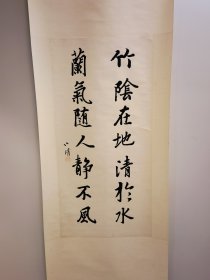 竹陰在地清於水
蘭氣随人静不風